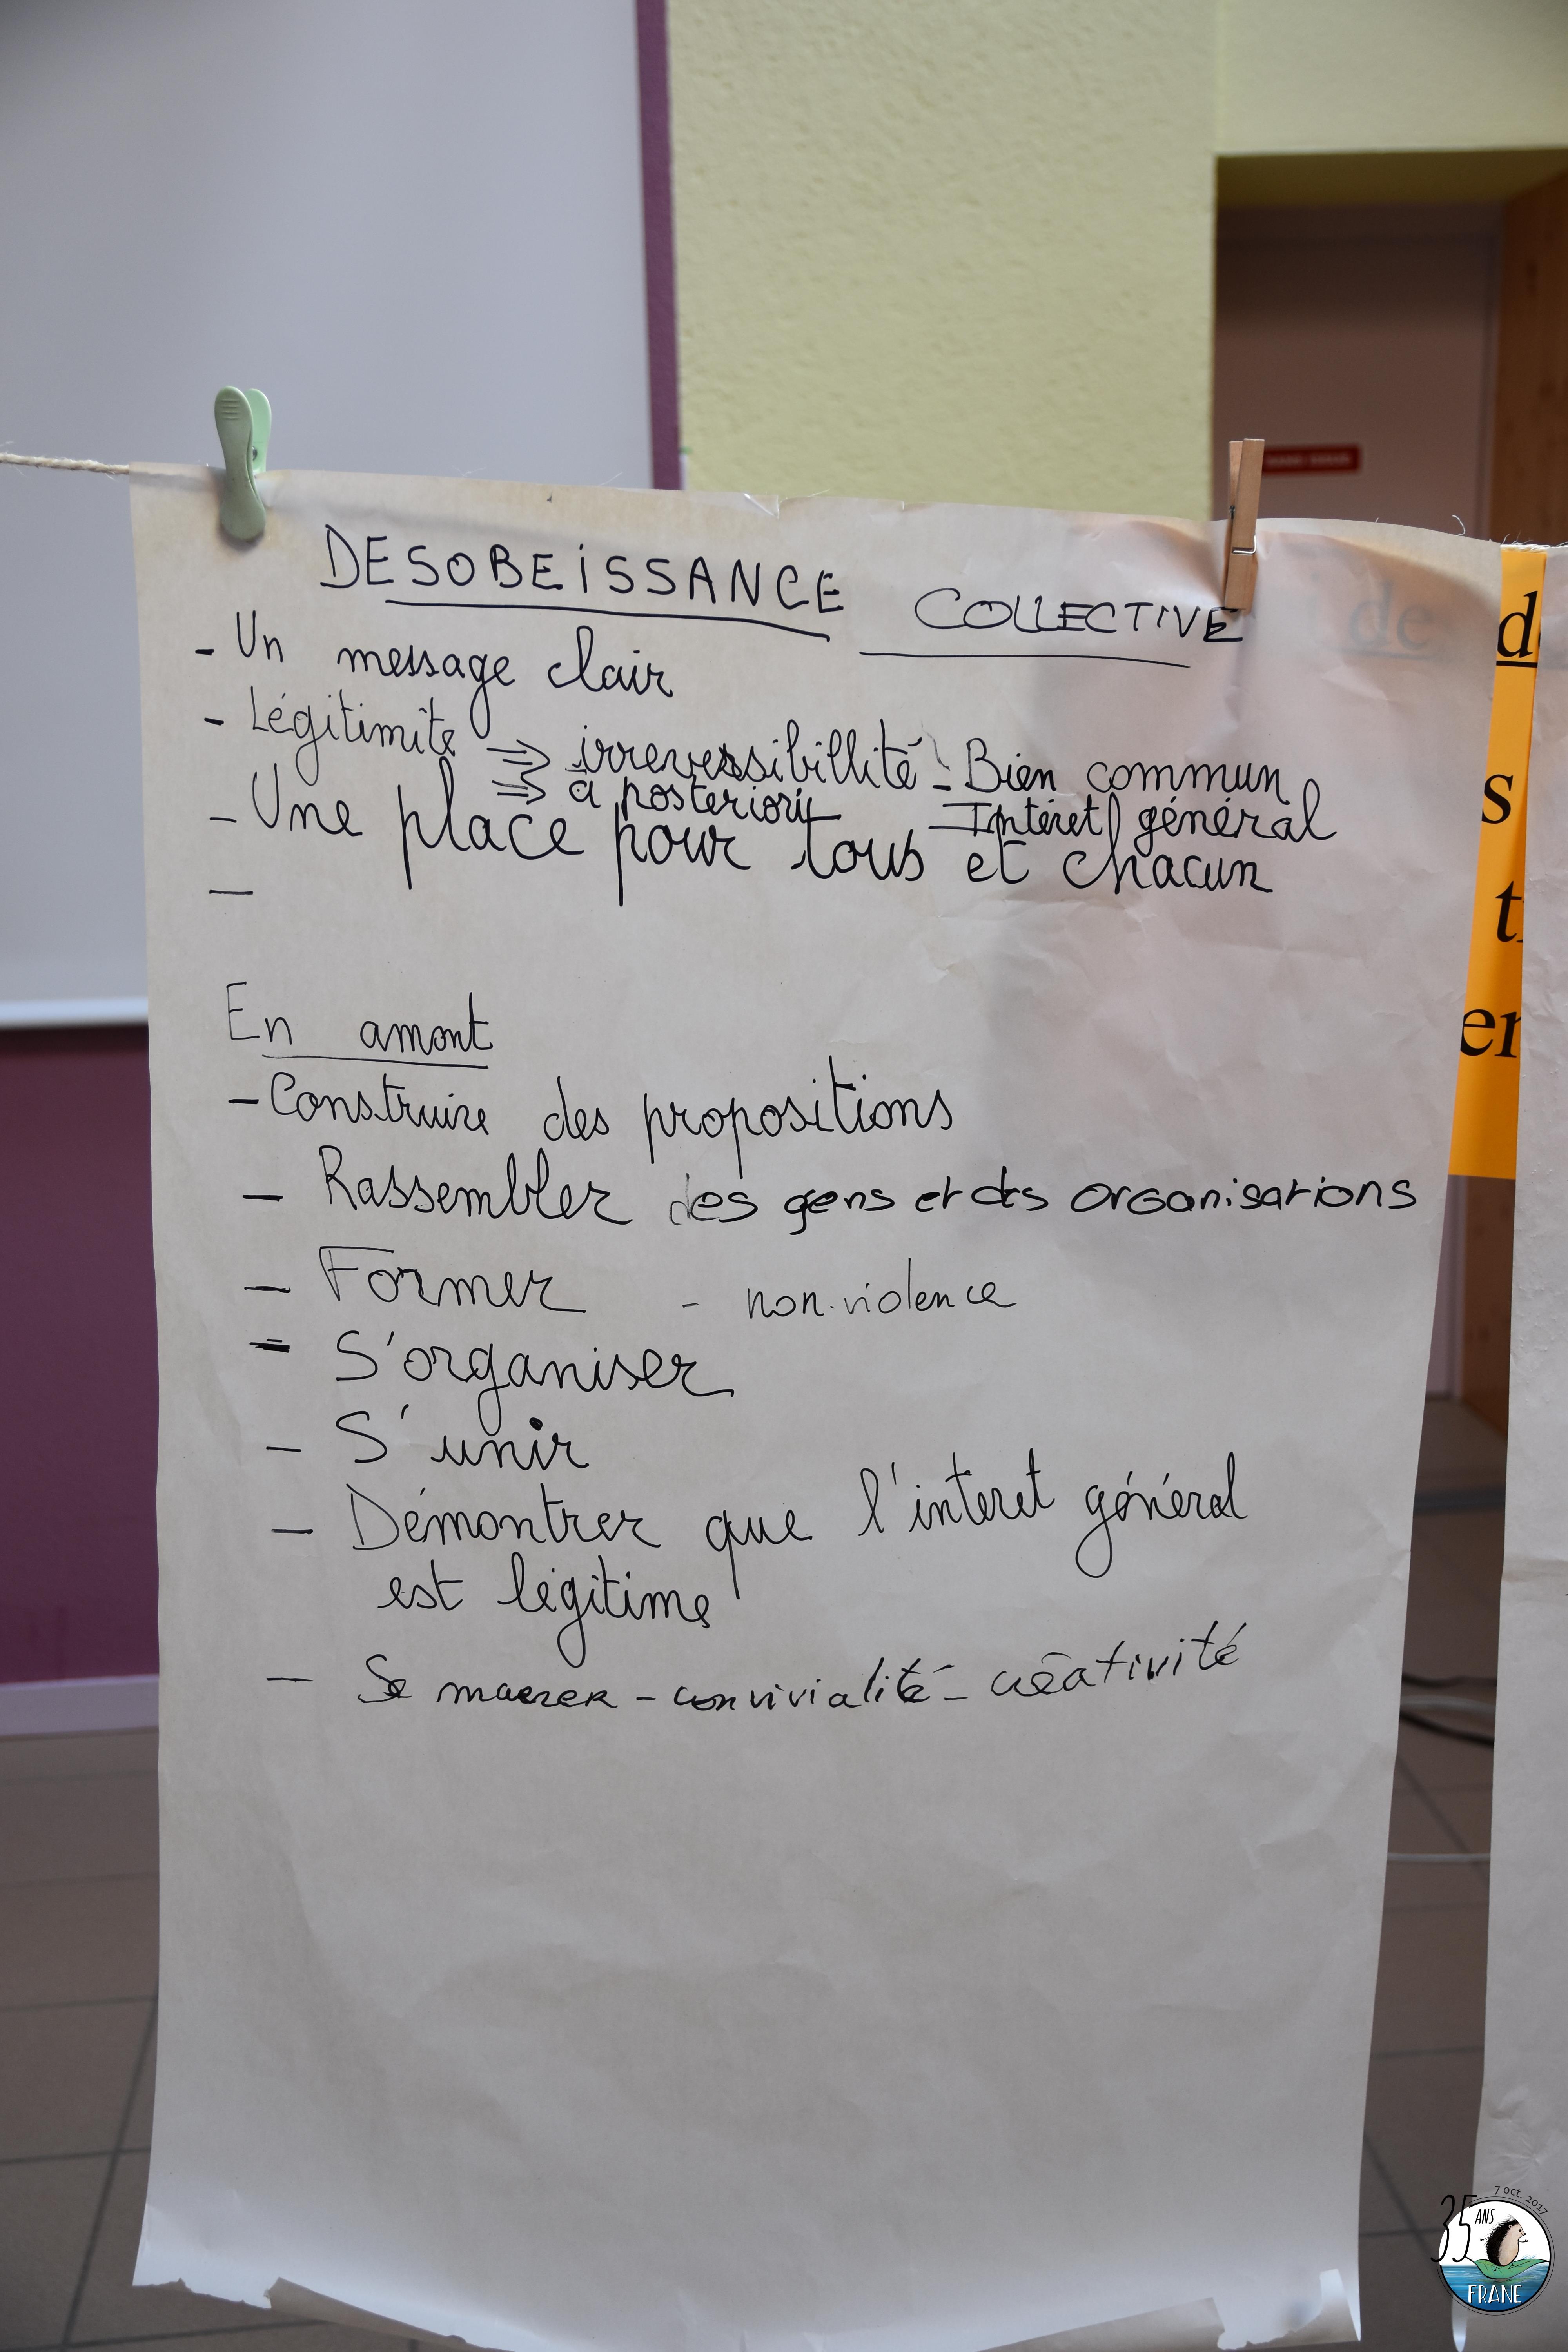 DESOBEISSANCE COLLECTIVE
- Un message clair
- Légitimité ⇒ irreverssibillité - Bien commun
⇒ à posteriori - Intéret général
- Une place pour tous et chacun
-
En amont
- Construire des propositions
- Rassembler des gens et des organisations
- Former - non-violence
- S'organiser
- S'unir
- Démontrer que l'interet général
est légitime
- Se marrer - convivialité - créativité
de
d
s
t
er
35 ANS
7 oct. 2017
FRANE